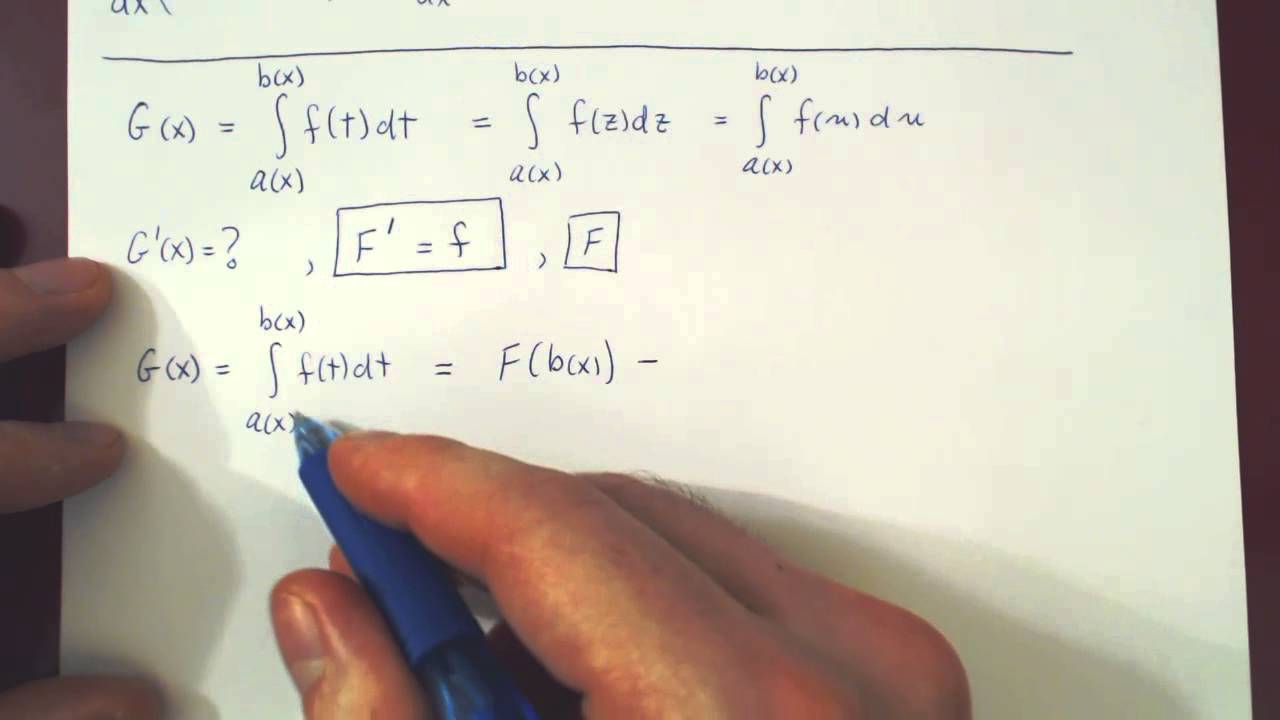 G(x) = ∫_{a(x)}^{b(x)} f(t)dt = ∫_{a(x)}^{b(x)} f(z)dz = ∫_{a(x)}^{b(x)} f(u)du
G'(x) = ? , F' = f , F
G(x) = ∫_{a(x)}^{b(x)} f(t)dt = F(b(x)) −